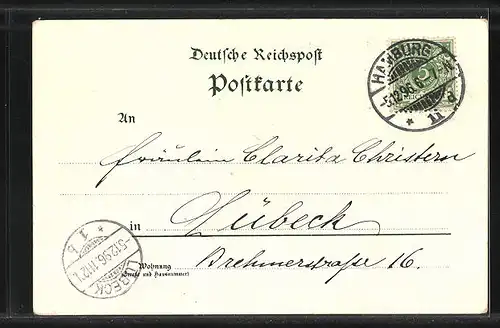 Deutsche Reichspost
Postkarte
HAMBURG
5.12.96.6
* 11 a
An
Fräulein Clarita Christern
in Lübeck
Wohnung
(Straße und Hausnummer)
Brehmerstraße 16.
LÜBECK
-5.12.96.11-12
* 1 b